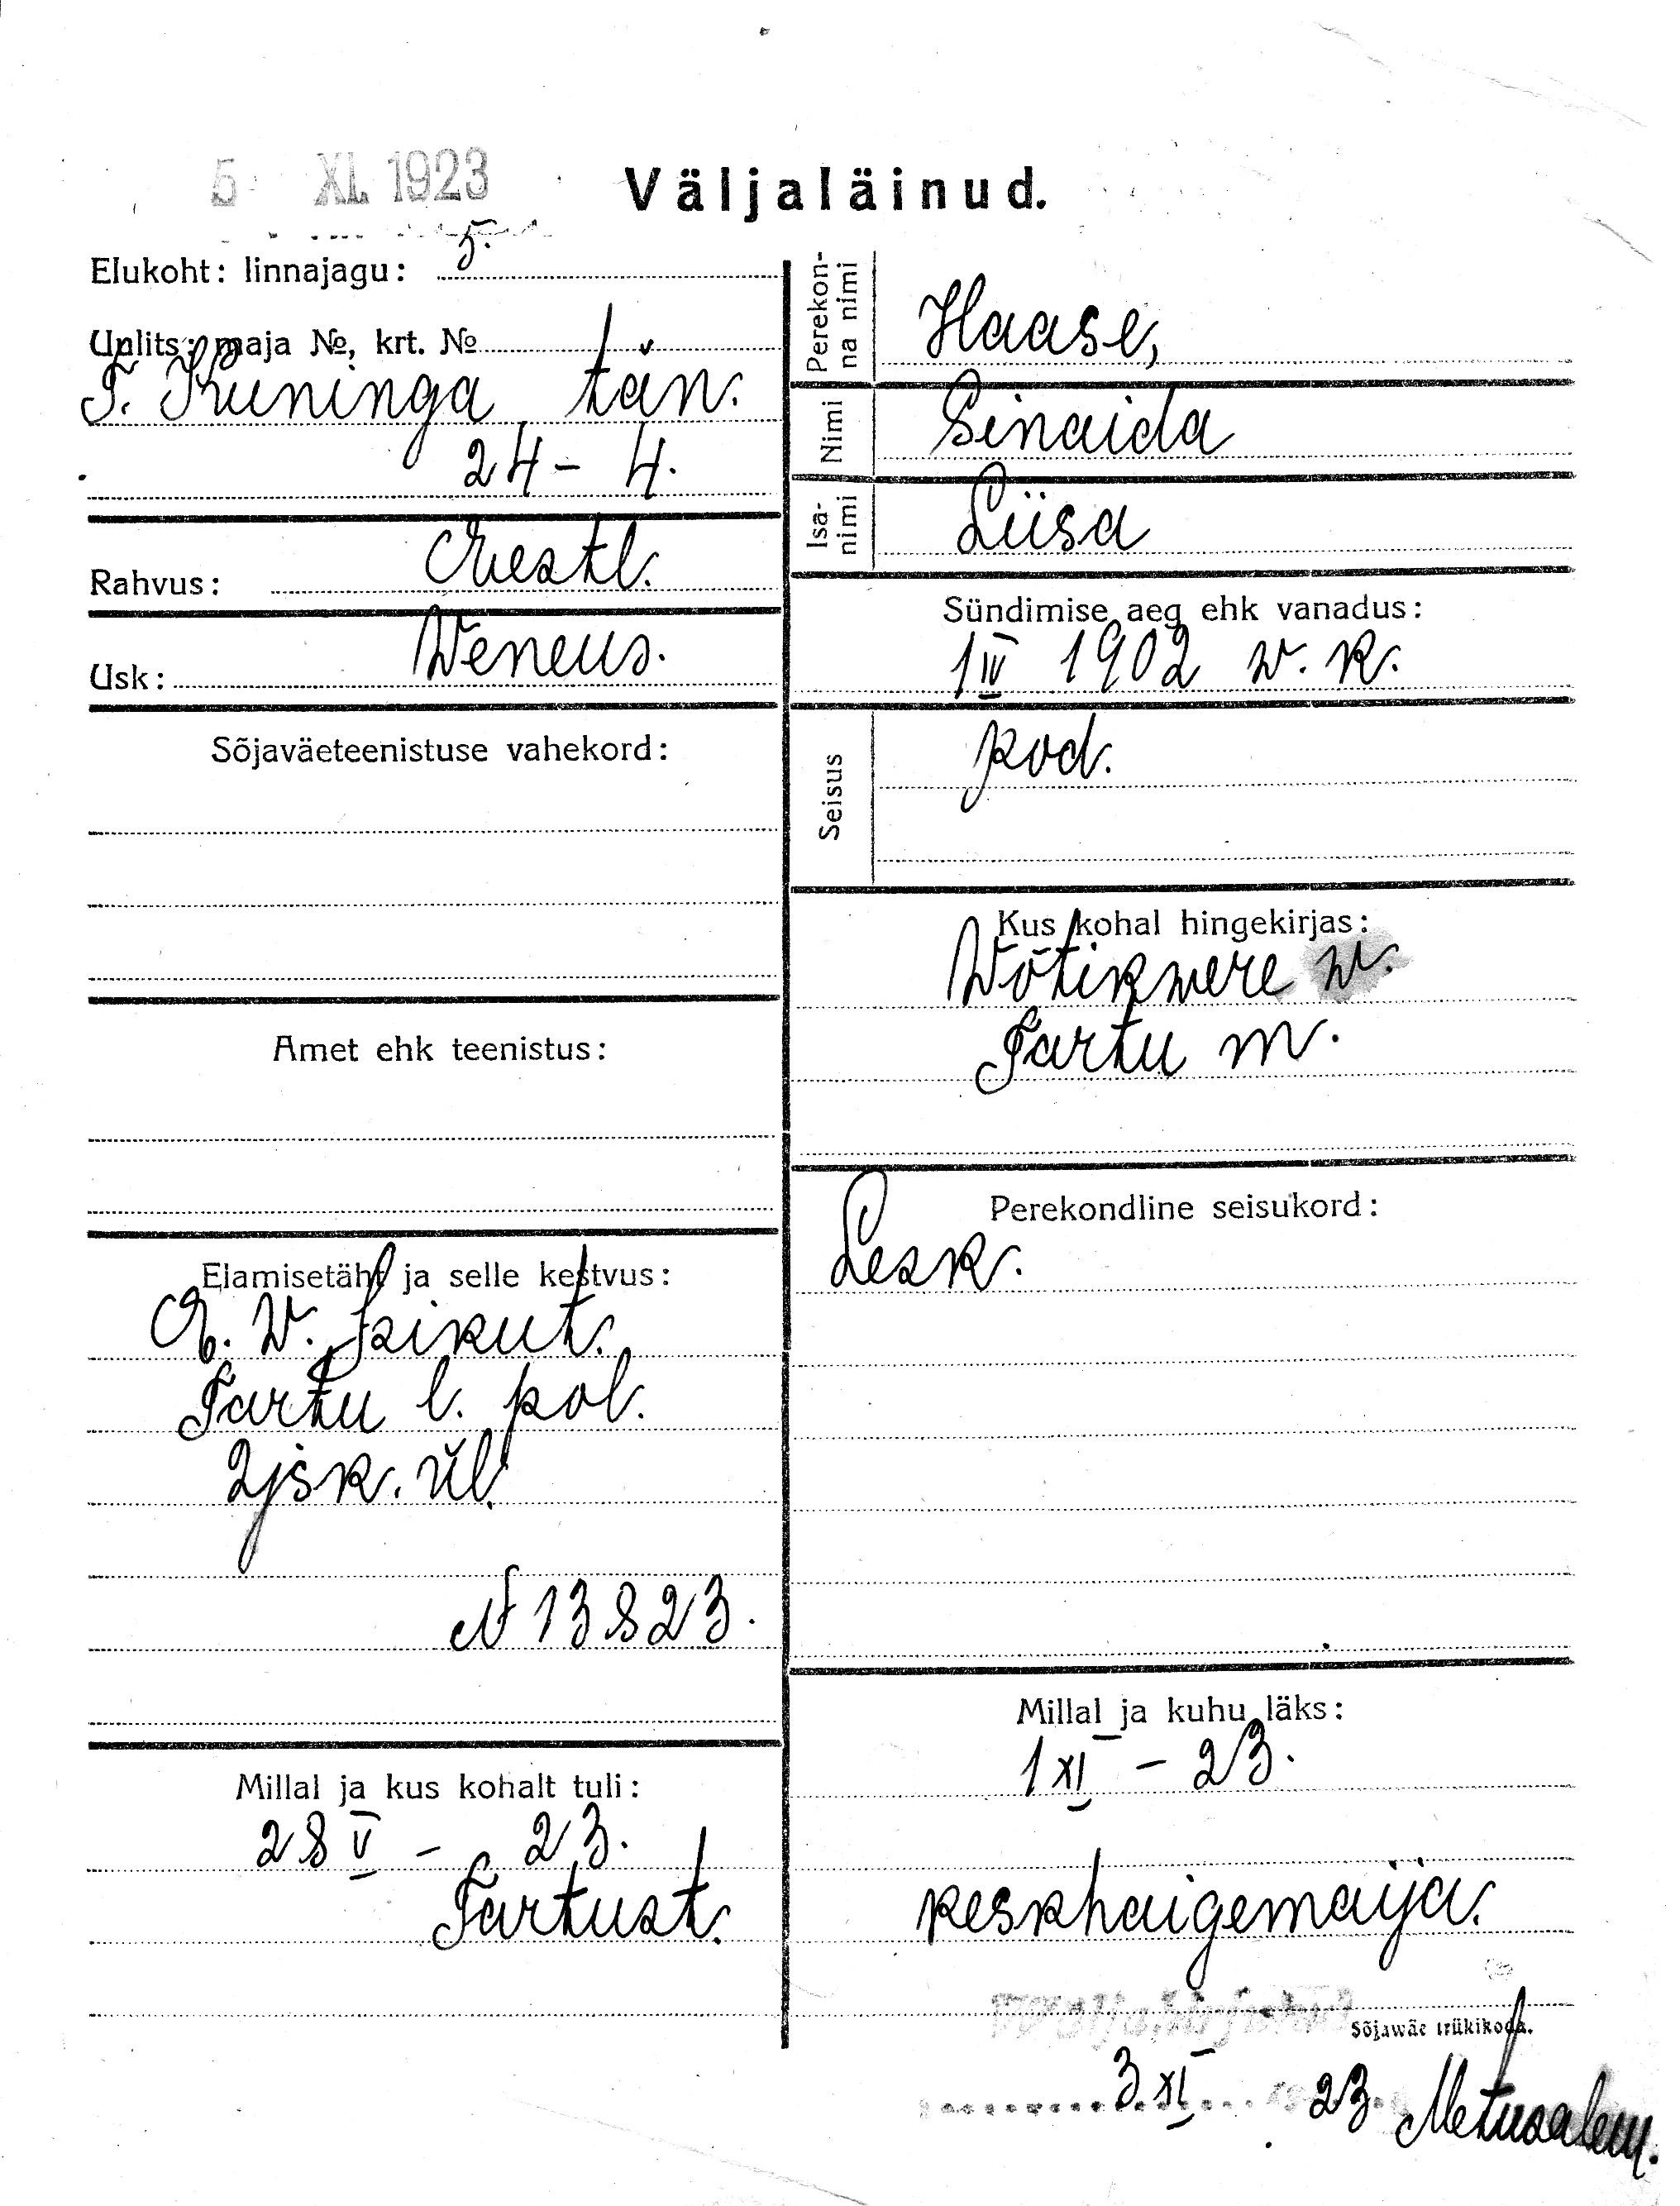 5 XI. 1923
Väljaläinud.
Elukoht: linnajagu: 5.
Uulits: maja №, krt. №
T. Kuninga tän.
24 - 4.
Rahvus: Eestl.
Usk: Weneus.
Sõjaväeteenistuse vahekord:
Amet ehk teenistus:
Elamisetäht ja selle kestvus:
E. W. Isikut.
Tartu l. pol.
2 jsk. ül.
N 13823.
Millal ja kus kohalt tuli:
28 V - 23.
Tartust.
Perekon-
na nimi
Haase,
Nimi
Sinaida
Isa-
nimi
Liisa
Sündimise aeg ehk vanadus:
1 IV 1902 w. k.
Seisus
kod.
Kus kohal hingekirjas:
Wõtikwere w.
Tartu m.
Perekondline seisukord:
Lesk.
Millal ja kuhu läks:
1 XI - 23.
keskhaigemaija.
Wälja kirjutud
Sõjawäe trükikoda.
3 XI 23 Metusalem.